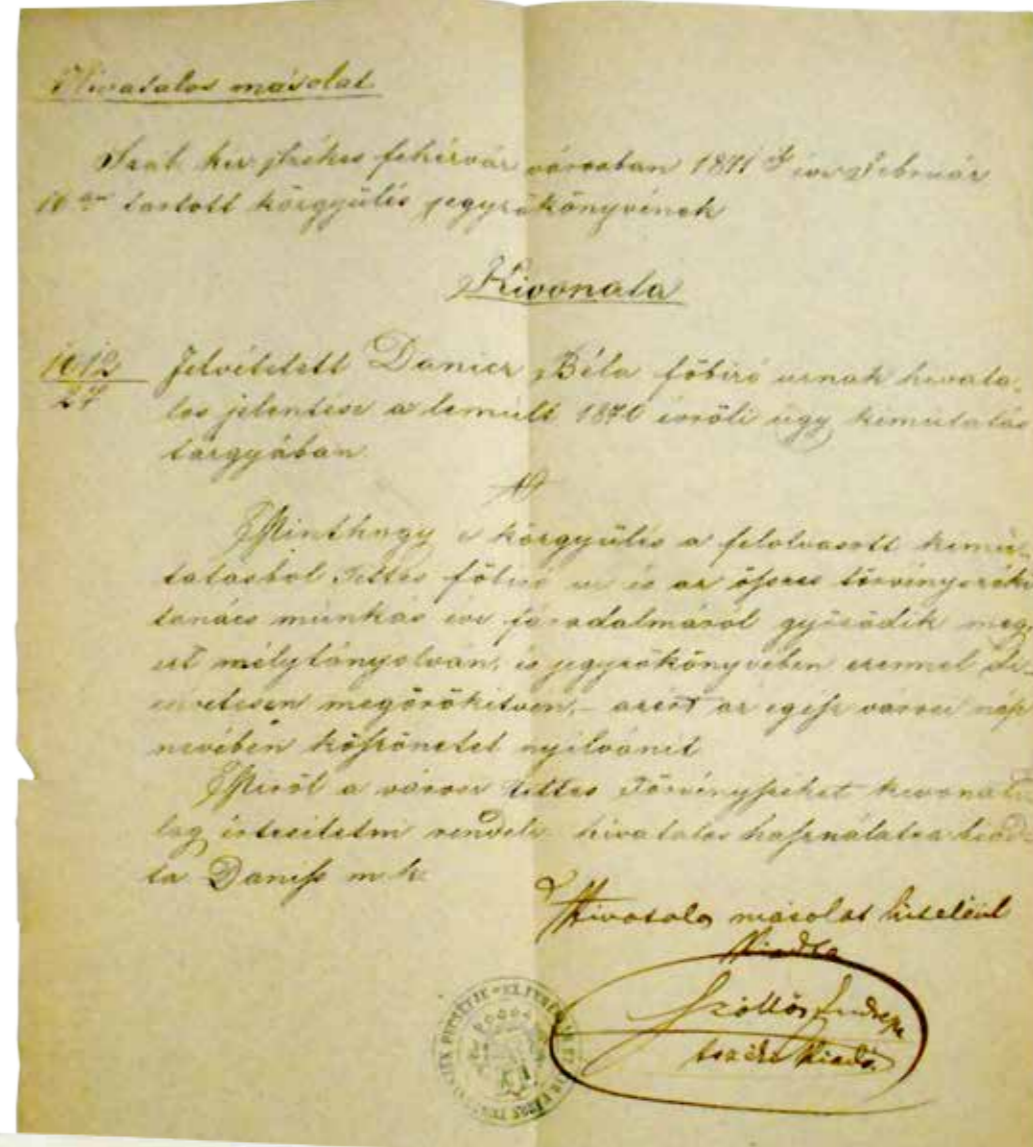 Hivatalos másolat
Szab. kir. Székes fehérvár városban 1871 évi Február
10 én tartott közgyülés jegyzőkönyvének
Kivonata
1012
27
Felvétetett Danicz Béla főbiró urnak hivata-
los jelentese a lemult 1870 évröli ügy kimutatás
tárgyában
Minthogy a közgyülés a felolvasott kimu-
tatásbol Tettes főbiró ur és az összes törvényszéki
tanács munkás évi fáradalmáról győződik meg,
ezt méltányolván, és jegyzőkönyvében ezennel
megörökitvén, – azért az egész város nép
nevében köszönetet nyilvánit
Miröl a városi tettes Törvényszéket kivonati-
lag értesitetni rendeli. hivatalos használatra kiad-
ta Danisz m. k.
Hivatalos másolat hiteléül
Kiadta
Szöllősy Endre
tszéki Kiadó